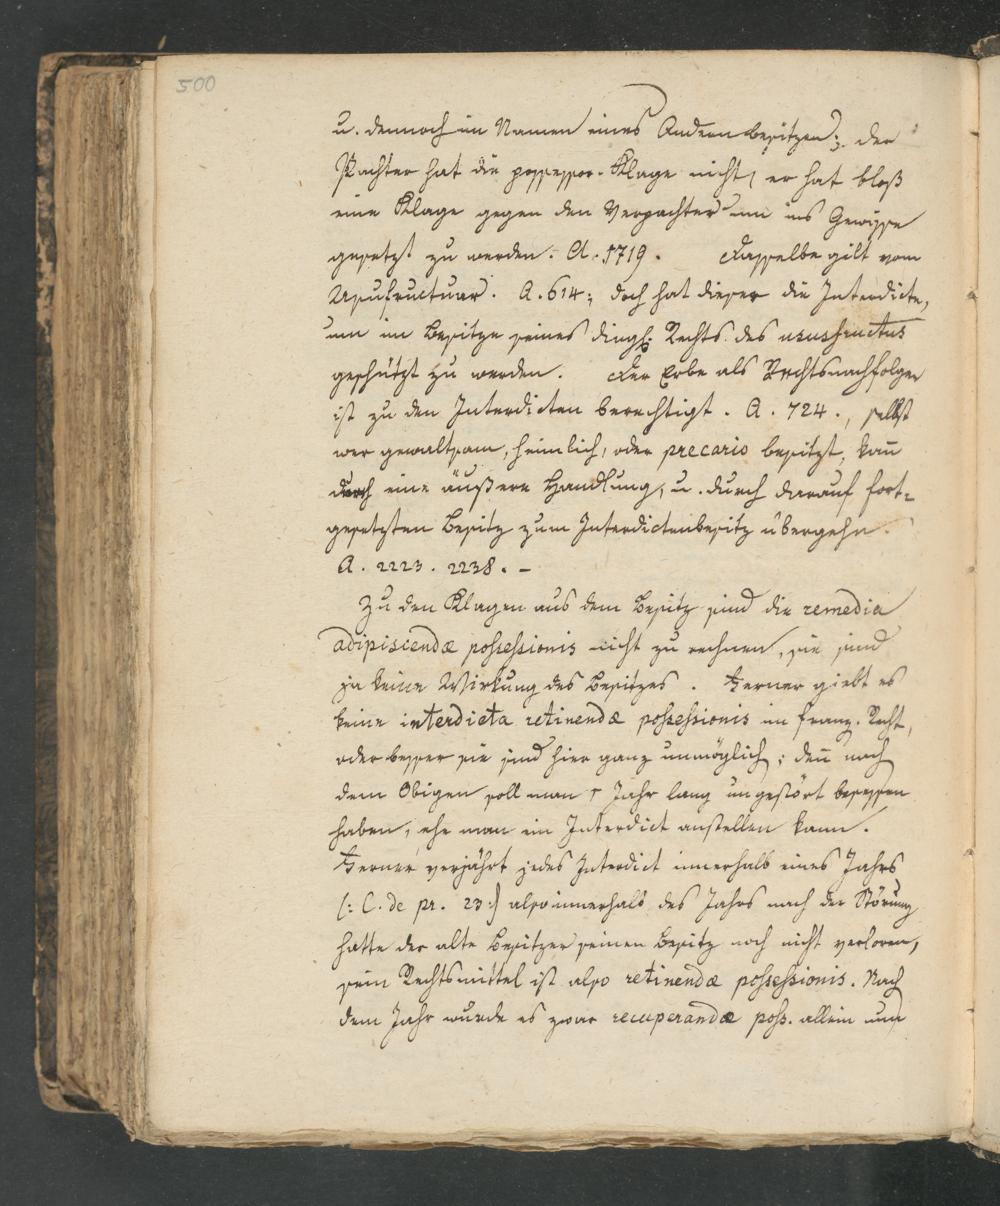 500
u. dennoch im Namen eines Andern besitzen; der
Pachter hat die possessor. Klage nicht, er hat bloß
eine Klage gegen den Verpachter um ins Gewisse
gesetzt zu werden. A. 1719. Dasselbe gilt vom
Usufructuar. A. 614; doch hat dieser die Interdicte,
um im Besitze seines dingl. Rechts des ususfructus
geschützt zu werden. Der Erbe als Rechtsnachfolger
ist zu den Interdicten berechtigt. A. 724., selbst
wer gewaltsam, heimlich, oder precario besitzt, kan̄
durch eine äußere Handlung, u. durch darauf fort-
gesetzten Besitz zum Interdictenbesitz übergehn.
A. 2223. 2238. –
Zu den Klagen aus dem Besitz sind die remedia
adipiscendæ possessionis nicht zu rechnen, sie sind
ja keine Wirkung des Besitzes. Ferner giebt es
keine interdicta retinendæ possessionis im franz. Recht,
oder besser sie sind hier ganz unmöglich; den̄ nach
dem Obigen soll man 1 Jahr lang ungestört besessen
haben, ehe man ein Interdict anstellen kann.
Ferner verjährt jedes Interdict innerhalb eines Jahrs
(: C. de pr. 23:) also innerhalb des Jahrs nach der Störung
hatte der alte Besitzer seinen Besitz noch nicht verloren,
sein Rechtsmittel ist also retinendæ possessionis. Nach
dem Jahr wurde es zwar recuperandæ poss. allein nun